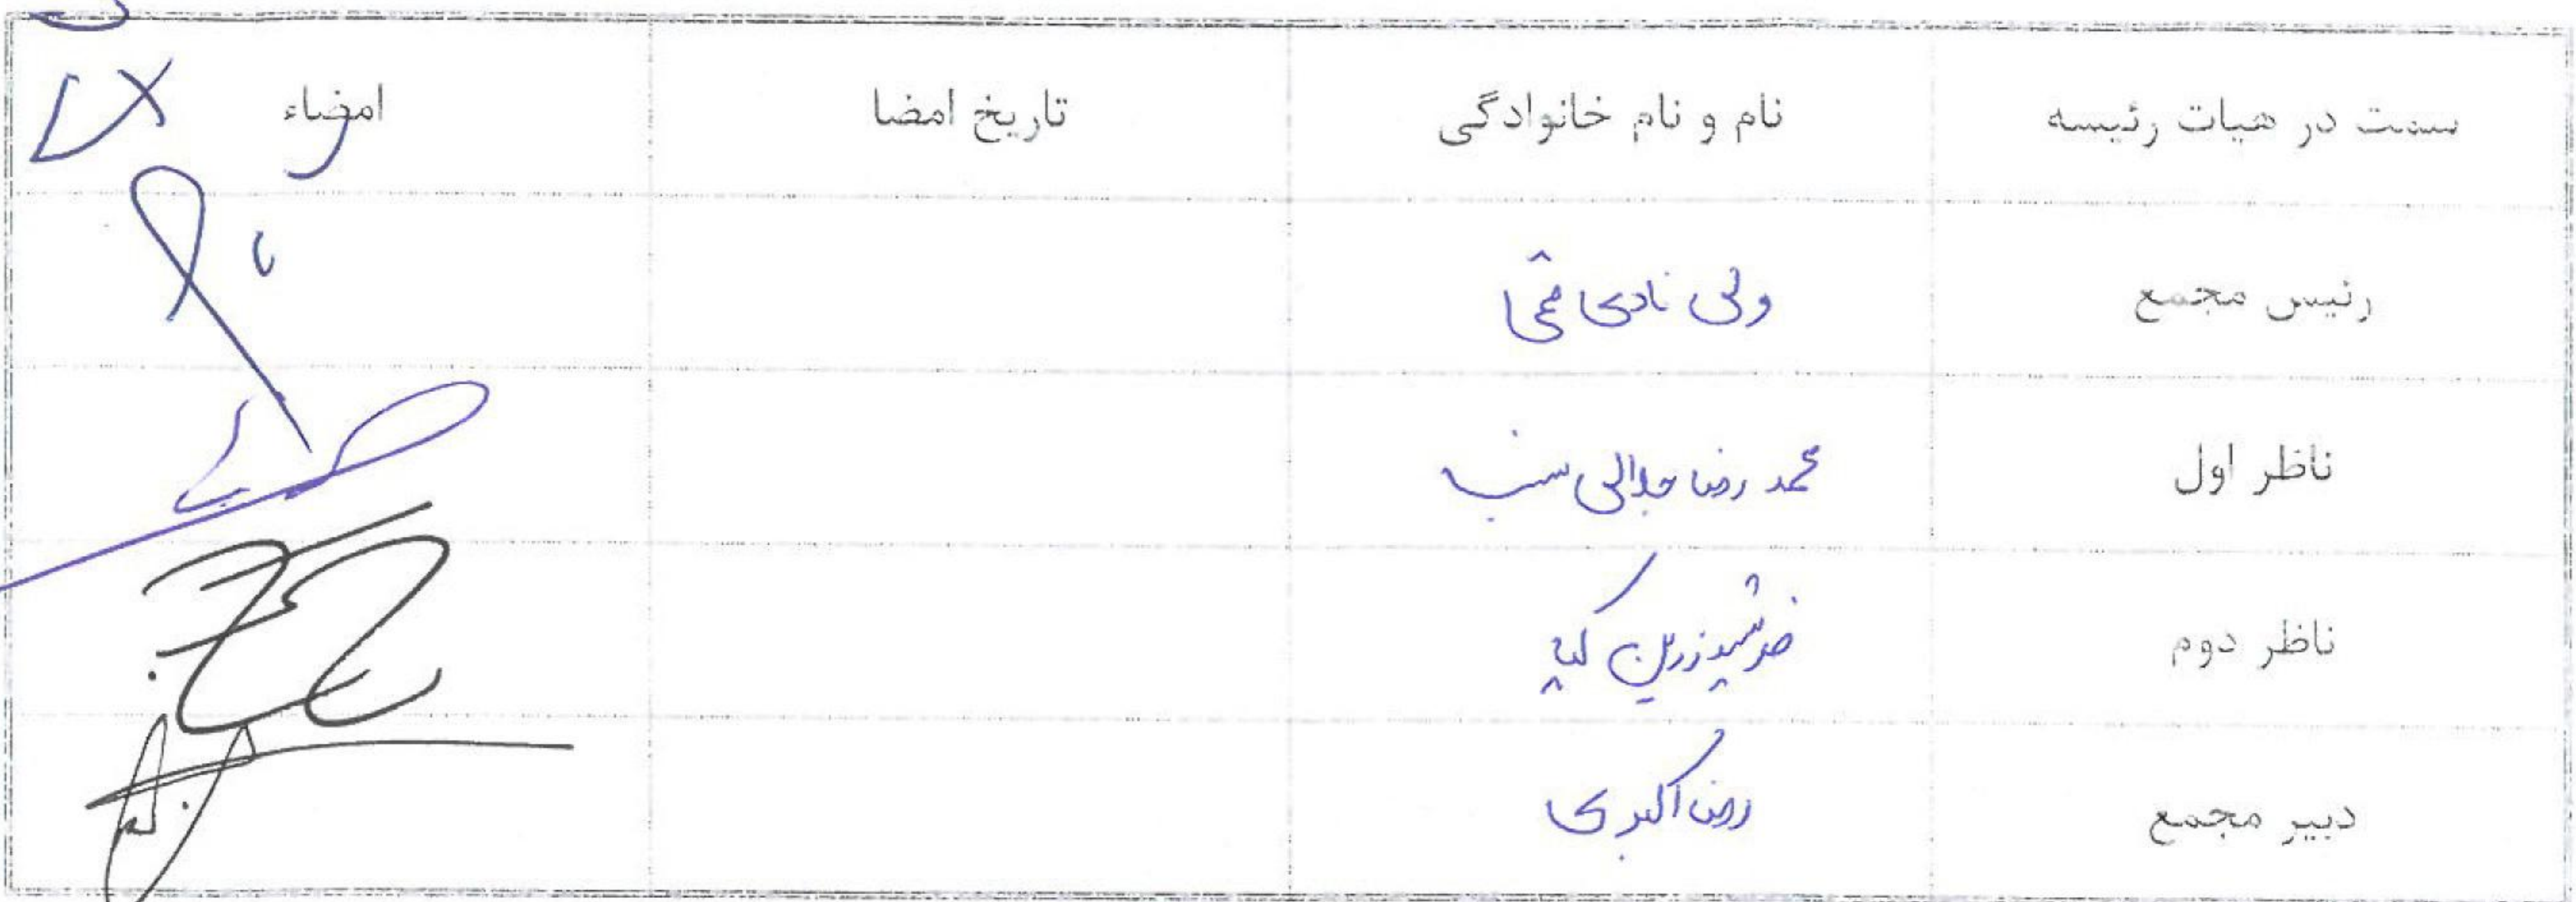 سمت در هیات رئیسه نام و نام خانوادگی تاریخ امضا امضاء
رئیس مجمع ولی نادی قمی
ناظر اول محمد رضا جلالی نسب
ناظر دوم خورشید زرین کیا
دبیر مجمع رضا اکبری